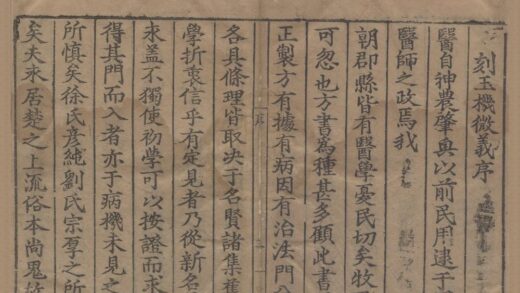 刻玉機微義序
醫自神農肇興以前民用逮于
醫師之政焉我
朝郡縣皆有醫學憂民切矣牧
可忽也方書為種甚多顧此書
正製方有據有病因有治法門
序
各具條理皆取决于名賢諸集
學折衷信乎有定見者乃從新名
求盖不獨使初學可以按證而求
得其門而入者亦于病機未見之
所慎矣徐氏彦純劉氏宗厚之所
矣夫永居楚之上流俗本尚鬼